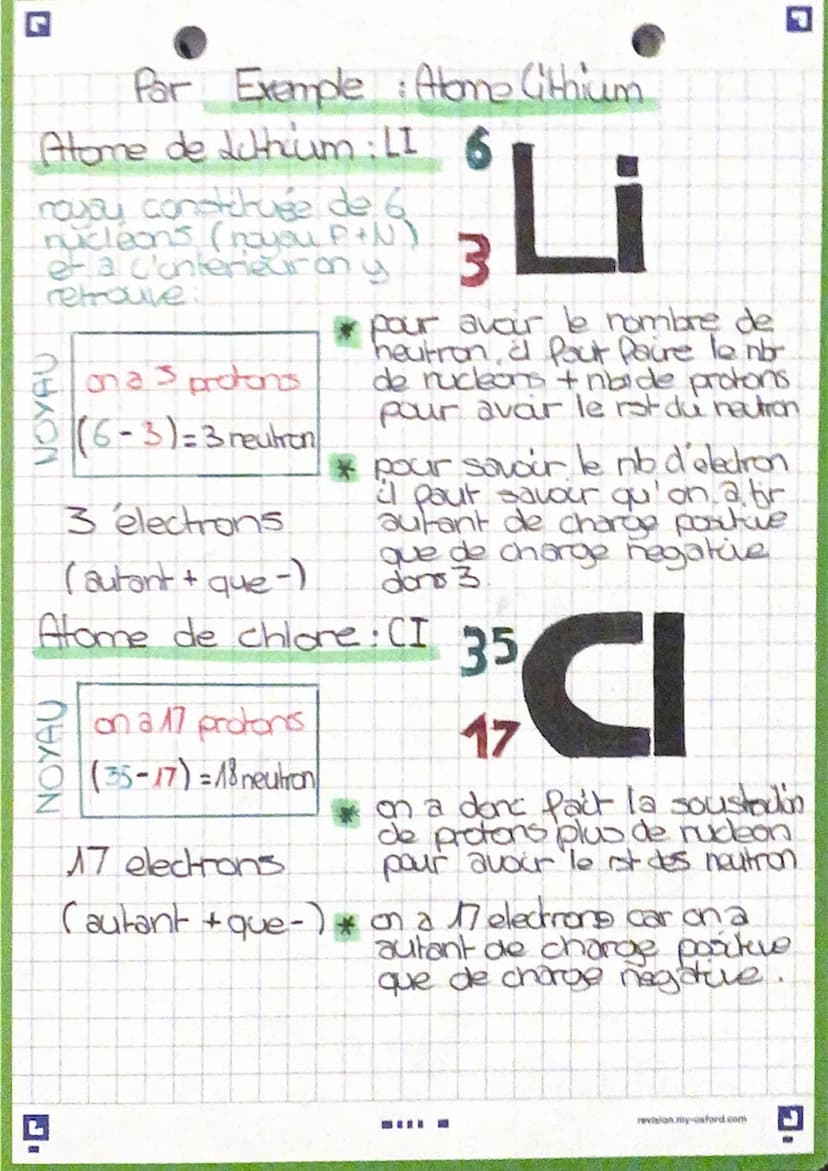 Par Exemple : Atome Lithium
Atome de Lithium : LI
6
3
Li
noyau constituée de 6
nucléons (noyau P+N)
et a l'interieur on y
retrouve :
NOYAU
on a 3 protons
(6-3)=3 neutron
3 électrons
(autant + que -)
* pour avoir le nombre de
neutron, il faut faire le nbr
de nucleons + nbr de protons
pour avoir le rst du neutron
* pour savoir le nb d'electron
il faut savoir qu'on a
autant de charge positive
que de charge negative
donc 3.
Atome de chlore : Cl
35
17
Cl
NOYAU
on a 17 protons
(35-17) = 18 neutron
17 electrons
(autant + que -)
* on a donc fait la
de protons plus de nucleon
pour avoir le rst des neutron
* on a 17 electrons car on a
autant de charge positive
que de charge négative.
revision.my-oxford.com